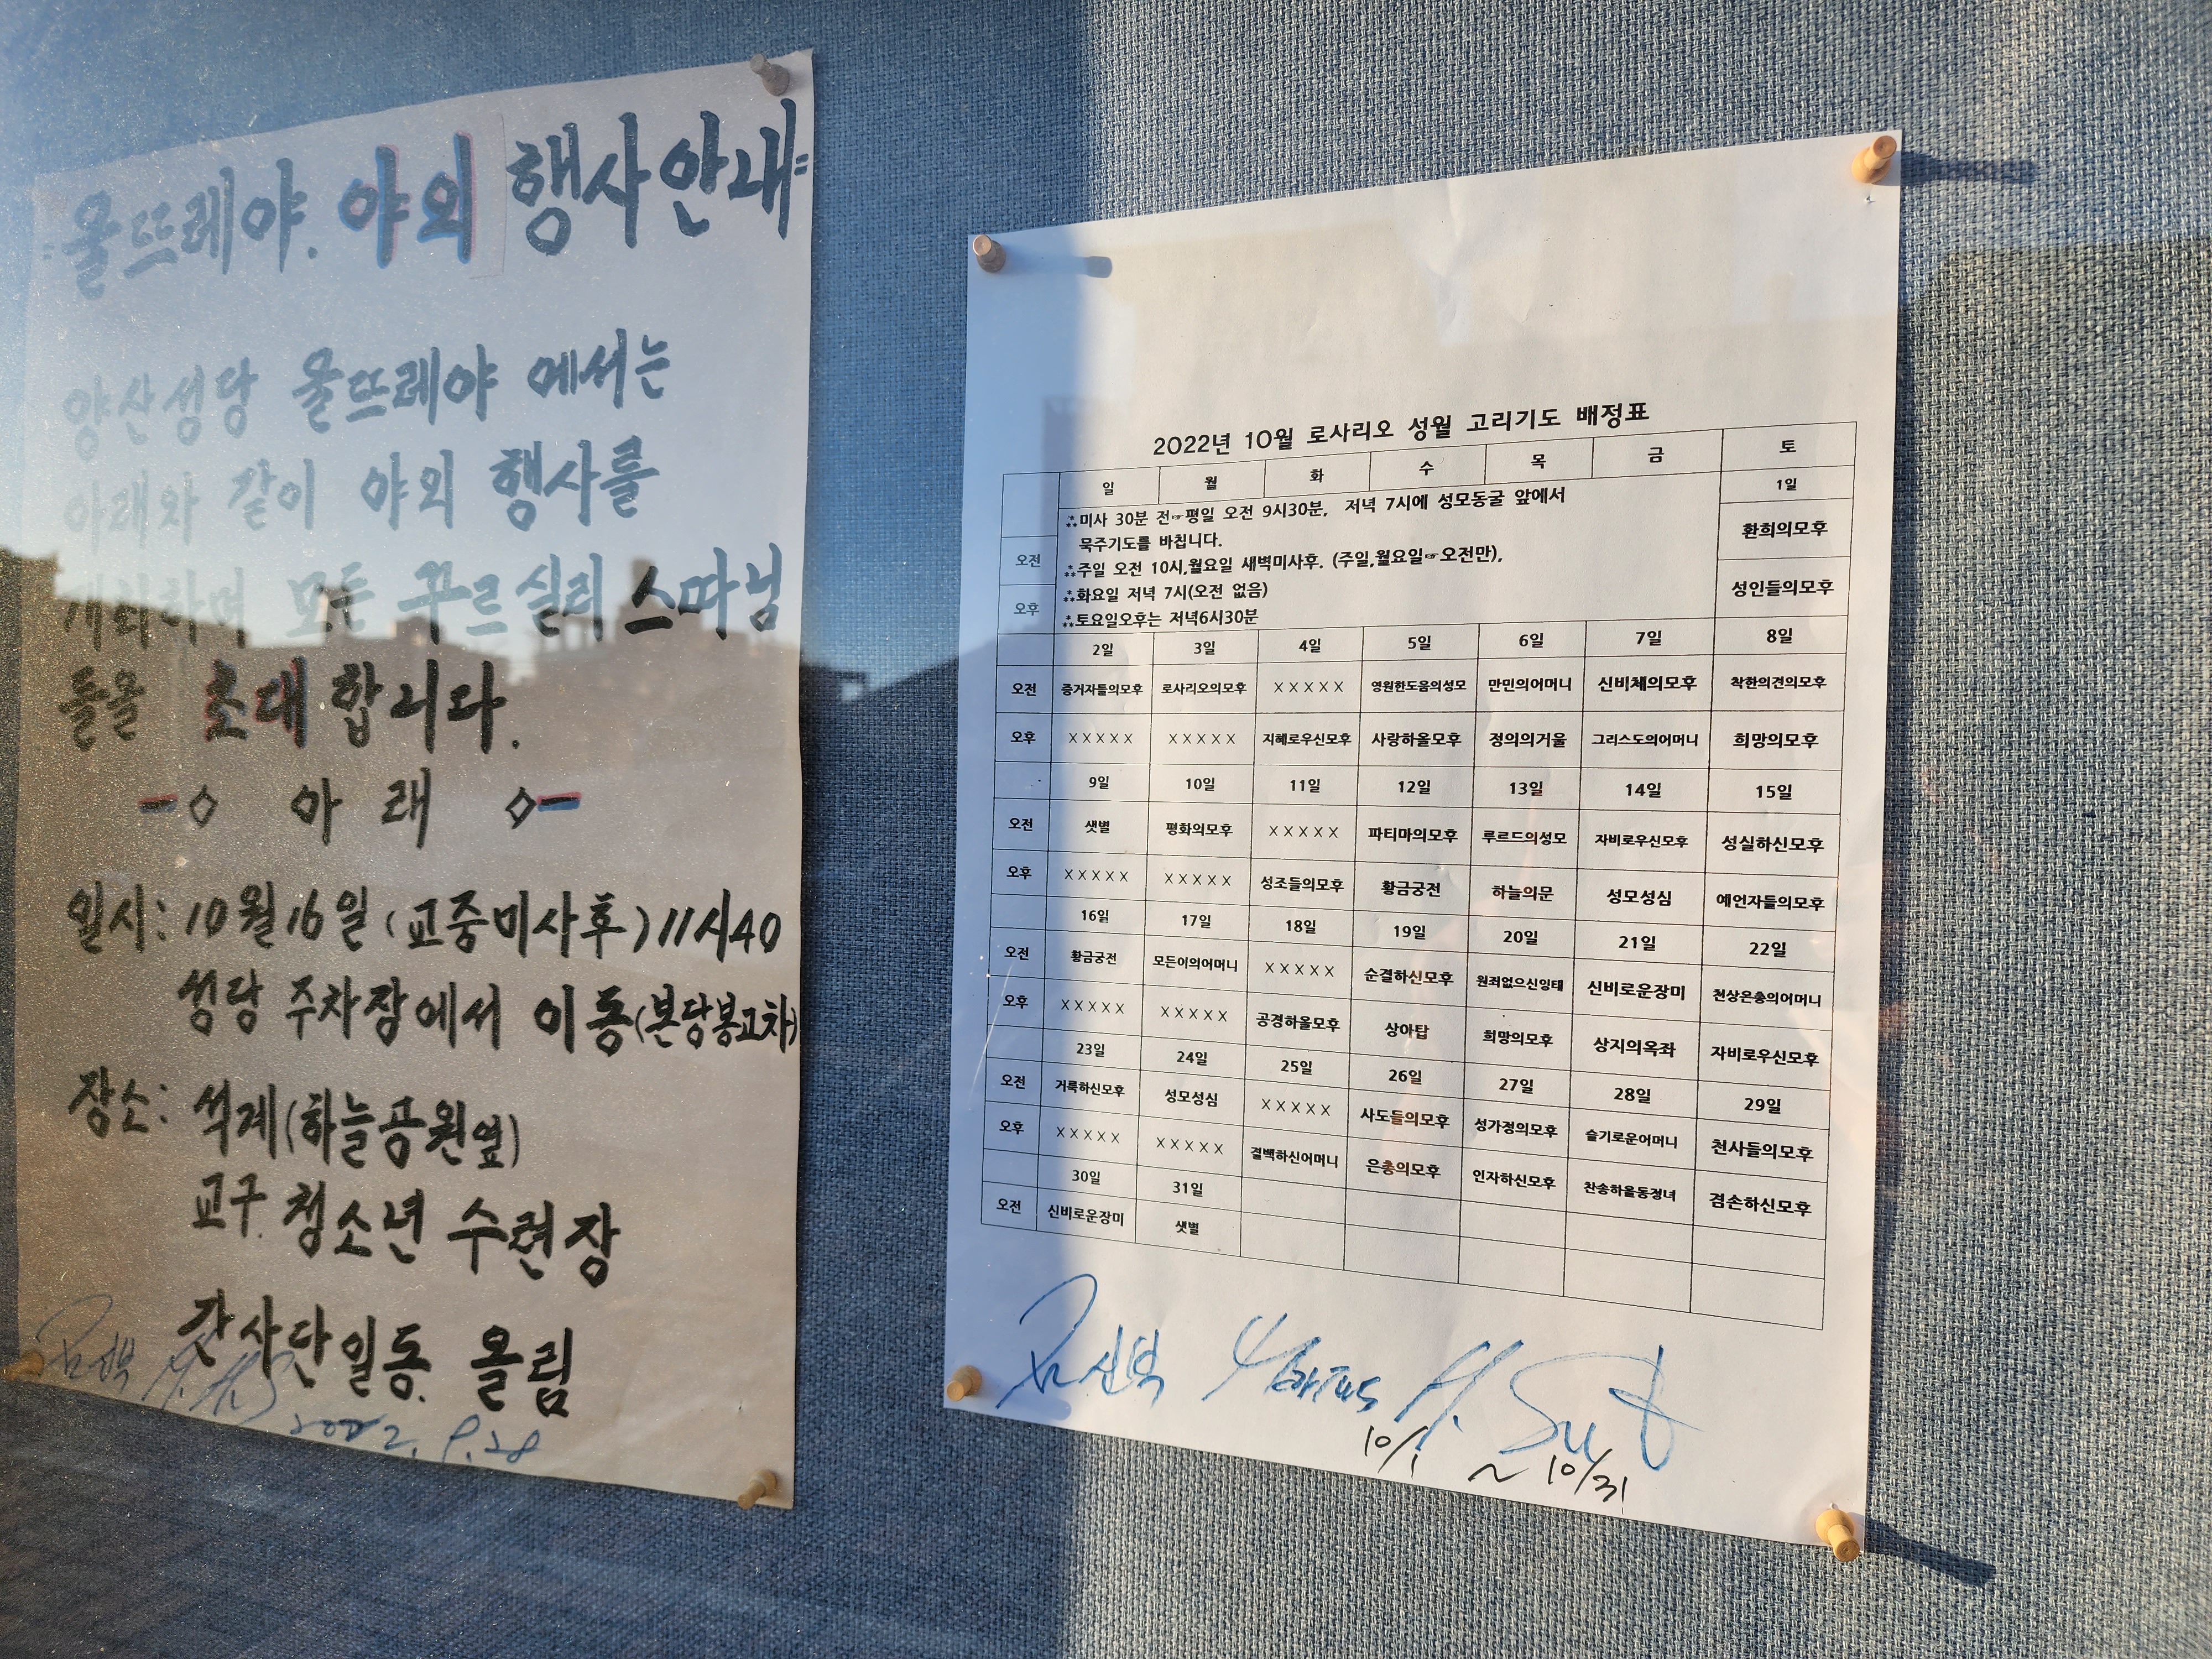 =울뜨레야. 야외 행사안내=
양산성당 울뜨레야 에서는
아래와 같이 야외 행사를
개최하며 모든 꾸르실리스따님
들을 초대합니다.
아 래
일시: 10월 16일 (교중미사후) 11시40
성당 주차장에서 이동(본당봉고차)
장소: 석계(하늘공원옆)
교구 청소년 수련장
간사단일동 올림
2022. 9. 28
2022년 10월 로사리오 성월 고리기도 배정표
일 월 화 수 목 금 토
1일
∴미사 30분 전☞평일 오전 9시30분, 저녁 7시에 성모동굴 앞에서
묵주기도를 바칩니다.
∴주일 오전 10시,월요일 새벽미사후. (주일,월요일☞오전만),
∴화요일 저녁 7시(오전 없음)
∴토요일오후는 저녁6시30분
오전 환희의모후
오후 성인들의모후
2일 3일 4일 5일 6일 7일 8일
오전 증거자들의모후 로사리오의모후 X X X X X 영원한도움의성모 만민의어머니 신비체의모후 착한의견의모후
오후 X X X X X X X X X X 지혜로우신모후 사랑하올모후 정의의거울 그리스도의어머니 희망의모후
9일 10일 11일 12일 13일 14일 15일
오전 샛별 평화의모후 X X X X X 파티마의모후 루르드의성모 자비로우신모후 성실하신모후
오후 X X X X X X X X X X 성조들의모후 황금궁전 하늘의문 성모성심 예언자들의모후
16일 17일 18일 19일 20일 21일 22일
오전 황금궁전 모든이의어머니 X X X X X 순결하신모후 원죄없으신잉태 신비로운장미 천상은총의어머니
오후 X X X X X X X X X X 공경하올모후 상아탑 희망의모후 상지의옥좌 자비로우신모후
23일 24일 25일 26일 27일 28일 29일
오전 거룩하신모후 성모성심 X X X X X 사도들의모후 성가정의모후 슬기로운어머니 천사들의모후
오후 X X X X X X X X X X 결백하신어머니 은총의모후 인자하신모후 찬송하올동정녀 겸손하신모후
30일 31일
오전 신비로운장미 샛별
10/1 ~ 10/31